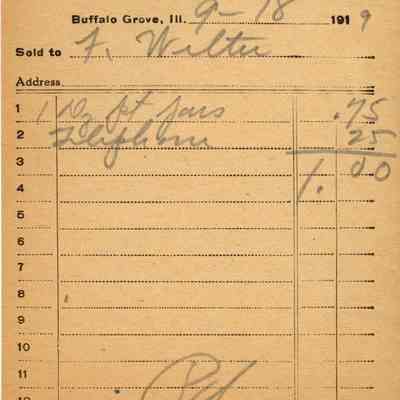 Buffalo Grove, Ill. 9-18 1919
Sold to F. Welter
Address
1 1 Dz pt jars .75
2 Telephone 25
3 1.00
4
5
6
7
8
9
10
11
Pd